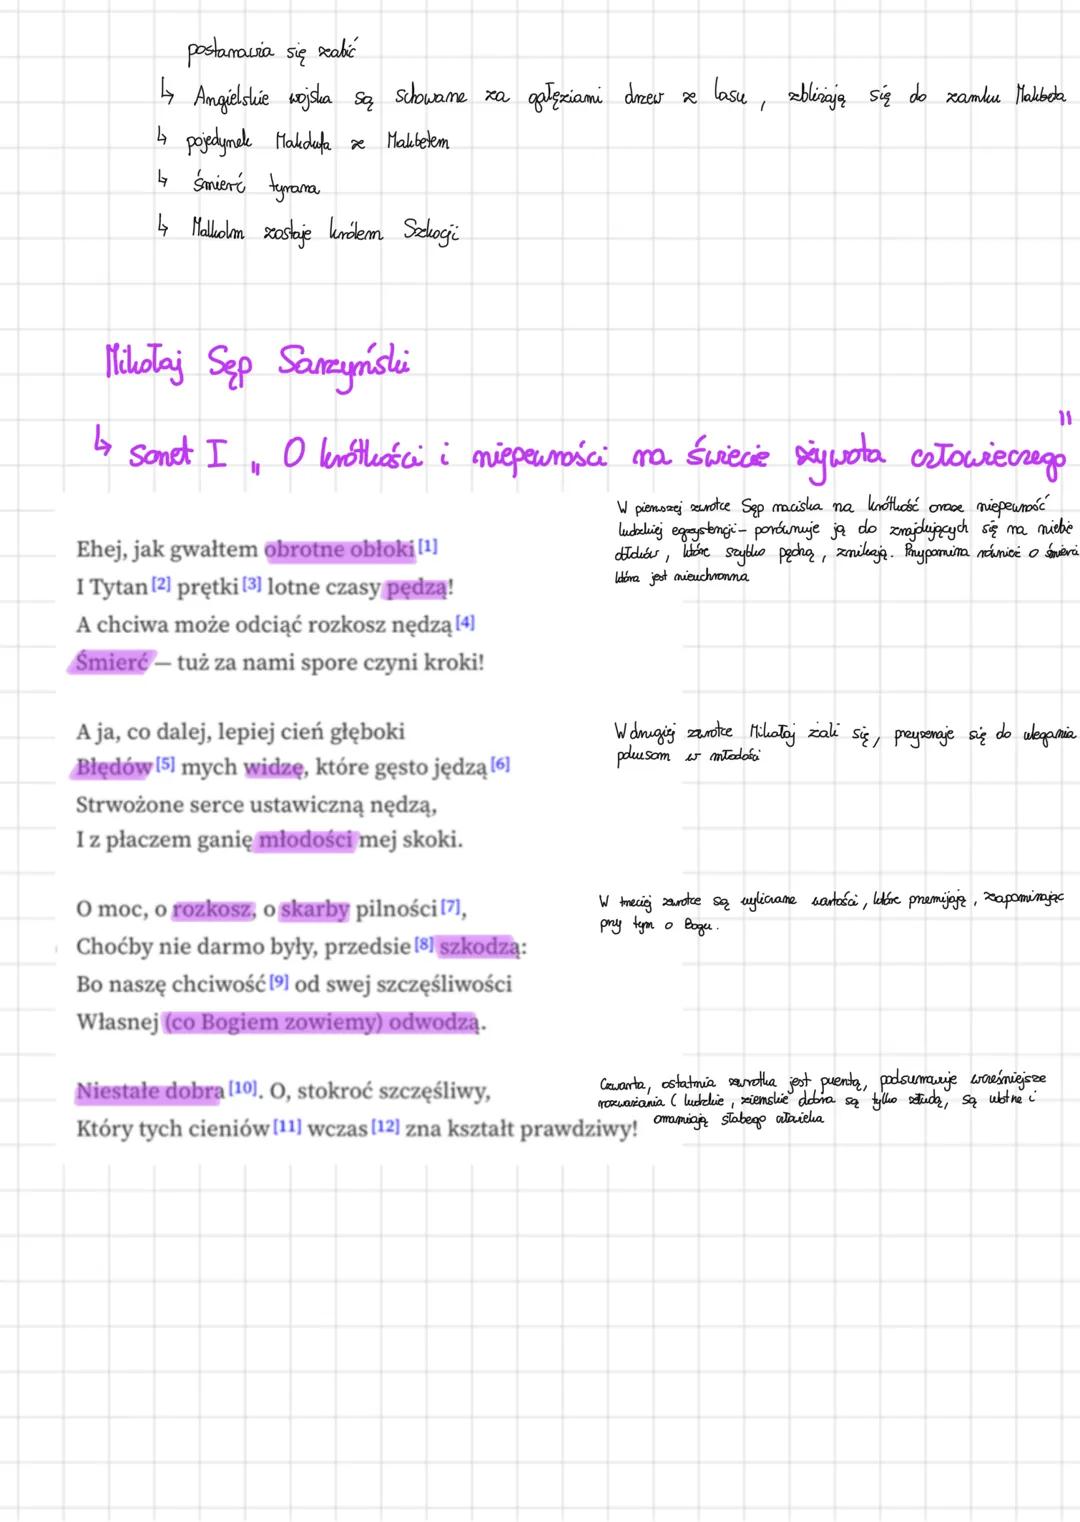 postanawia się zabić
↳ Angielskie wojska są schowane za gałęziami drzew z lasu, zbliżają się do zamku Makbeta
↳ pojedynek Makdufa z Makbetem
↳ śmierć tyrana
↳ Malkolm zostaje królem Szkocji
Mikołaj Sęp Sarzyński
↳ sonet I „ O krótkości i niepewności na świecie żywota człowieczego "
W pierwszej zwrotce Sęp naciska na krótkość oraz niepewność
ludzkiej egzystencji - porównuje ją do znajdujących się na niebie
obłoków, które szybko pędzą, znikają. Przypomina również o śmierci
która jest nieuchronna
Ehej, jak gwałtem obrotne obłoki [1]
I Tytan [2] prętki [3] lotne czasy pędzą!
A chciwa może odciąć rozkosz nędzą [4]
Śmierć — tuż za nami spore czyni kroki!
W drugiej zwrotce Mikołaj żali się, przyznaje się do ulegania
pokusom w młodości
A ja, co dalej, lepiej cień głęboki
Błędów [5] mych widzę, które gęsto jędzą [6]
Strwożone serce ustawiczną nędzą,
I z płaczem ganię młodości mej skoki.
W trzeciej zwrotce są wyliczane wartości, które przemijają, zapominając
przy tym o Bogu.
O moc, o rozkosz, o skarby pilności [7],
Choćby nie darmo były, przedsie [8] szkodzą:
Bo naszę chciwość [9] od swej szczęśliwości
Własnej (co Bogiem zowiemy) odwodzą.
Czwarta, ostatnia zwrotka jest puentą, podsumowuje wcześniejsze
rozważania ( ludzkie, ziemskie dobra są tylko złudą, są ulotne i
omamiają słabego człowieka
Niestałe dobra [10]. O, stokroć szczęśliwy,
Który tych cieniów [11] wczas [12] zna kształt prawdziwy!